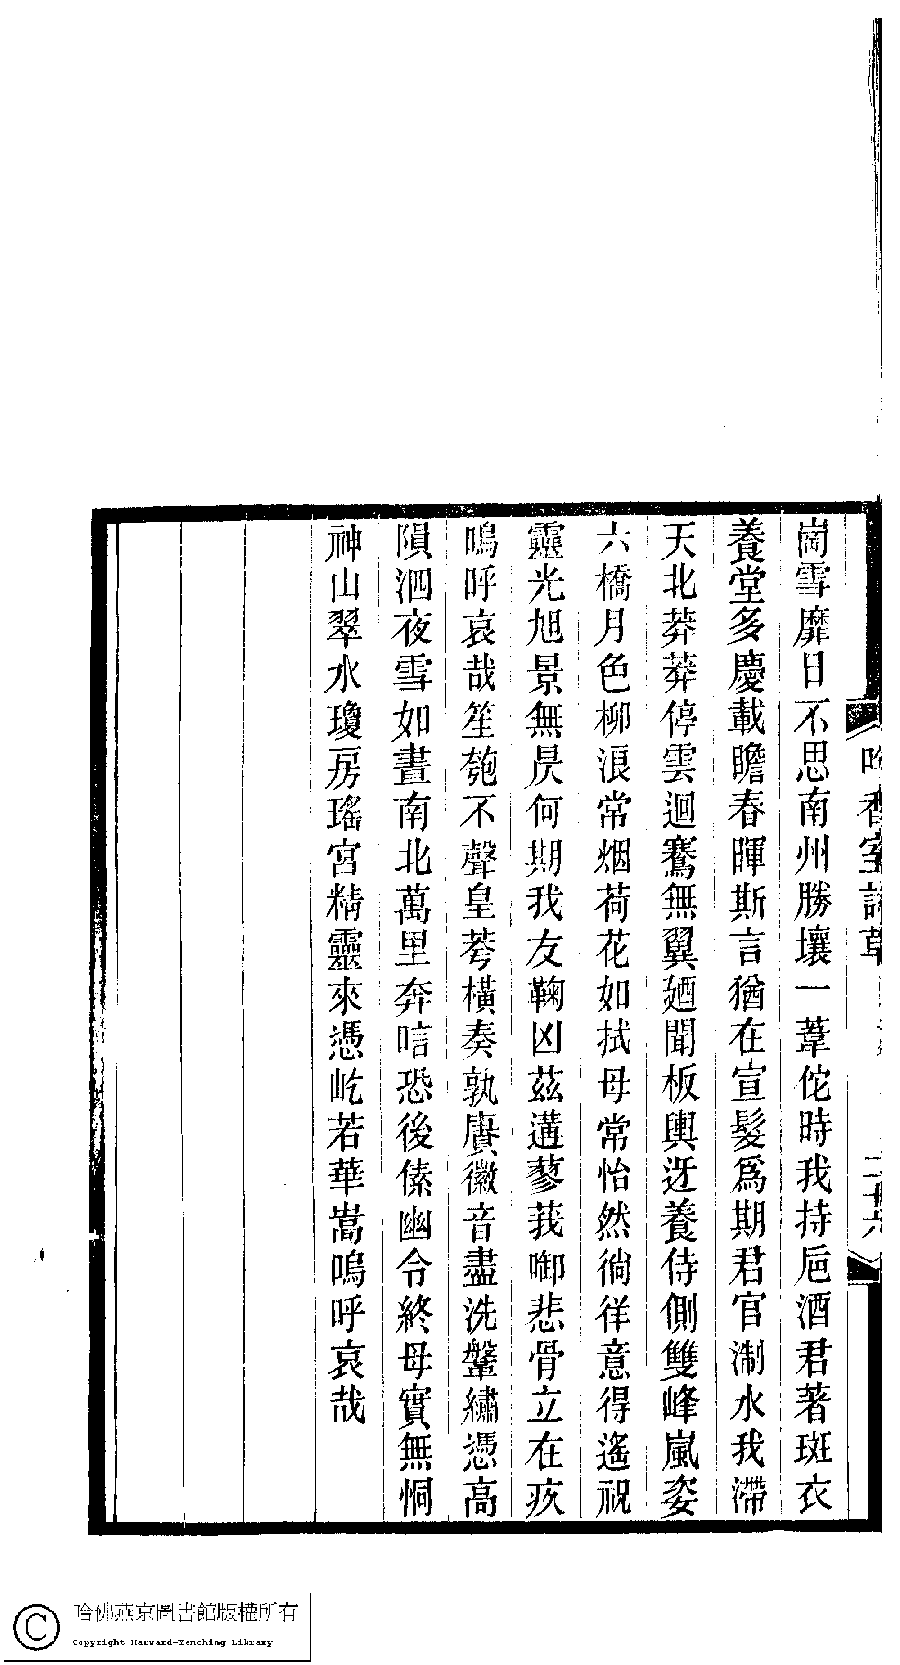 崗雪靡日不思南州勝壤一葦佗時我持巵酒君著斑衣
養堂多慶載瞻春暉斯言猶在宣髮爲期君官淛水我滯
天北莽莽停雲迴騫無翼廼聞板輿迓養侍側雙峰嵐姿
六橋月色柳浪常烟荷花如拭母常怡然徜徉意得遙祝
靈光旭景無昃何期我友鞠凶茲遘蓼莪啣悲骨立在疚
嗚呼哀哉笙匏不聲皇荂橫奏孰賡徽音盡洗鞶繡憑高
隕泗夜雪如晝南北萬里奔唁恐後傃幽令終母實無恫
神山翠水瓊房瑤宮精靈來憑屹若華嵩嗚呼哀哉
香室
二十六
哈佛燕京圖書館版權所有
Copyright Harvard-Yenching Library